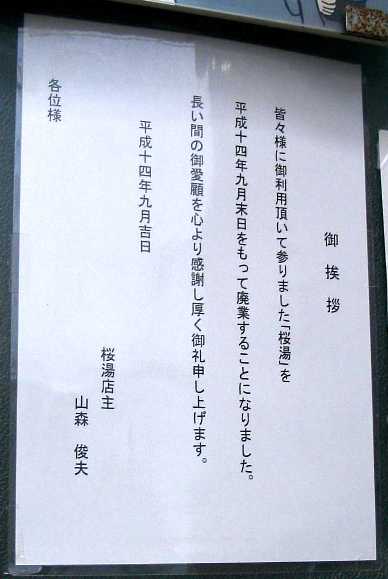 御挨拶
皆々様に御利用頂いて参りました「桜湯」を
平成十四年九月末日をもって廃業することになりました。
長い間の御愛顧を心より感謝し厚く御礼申し上げます。
平成十四年九月吉日
桜湯店主
山森 俊夫
各位様